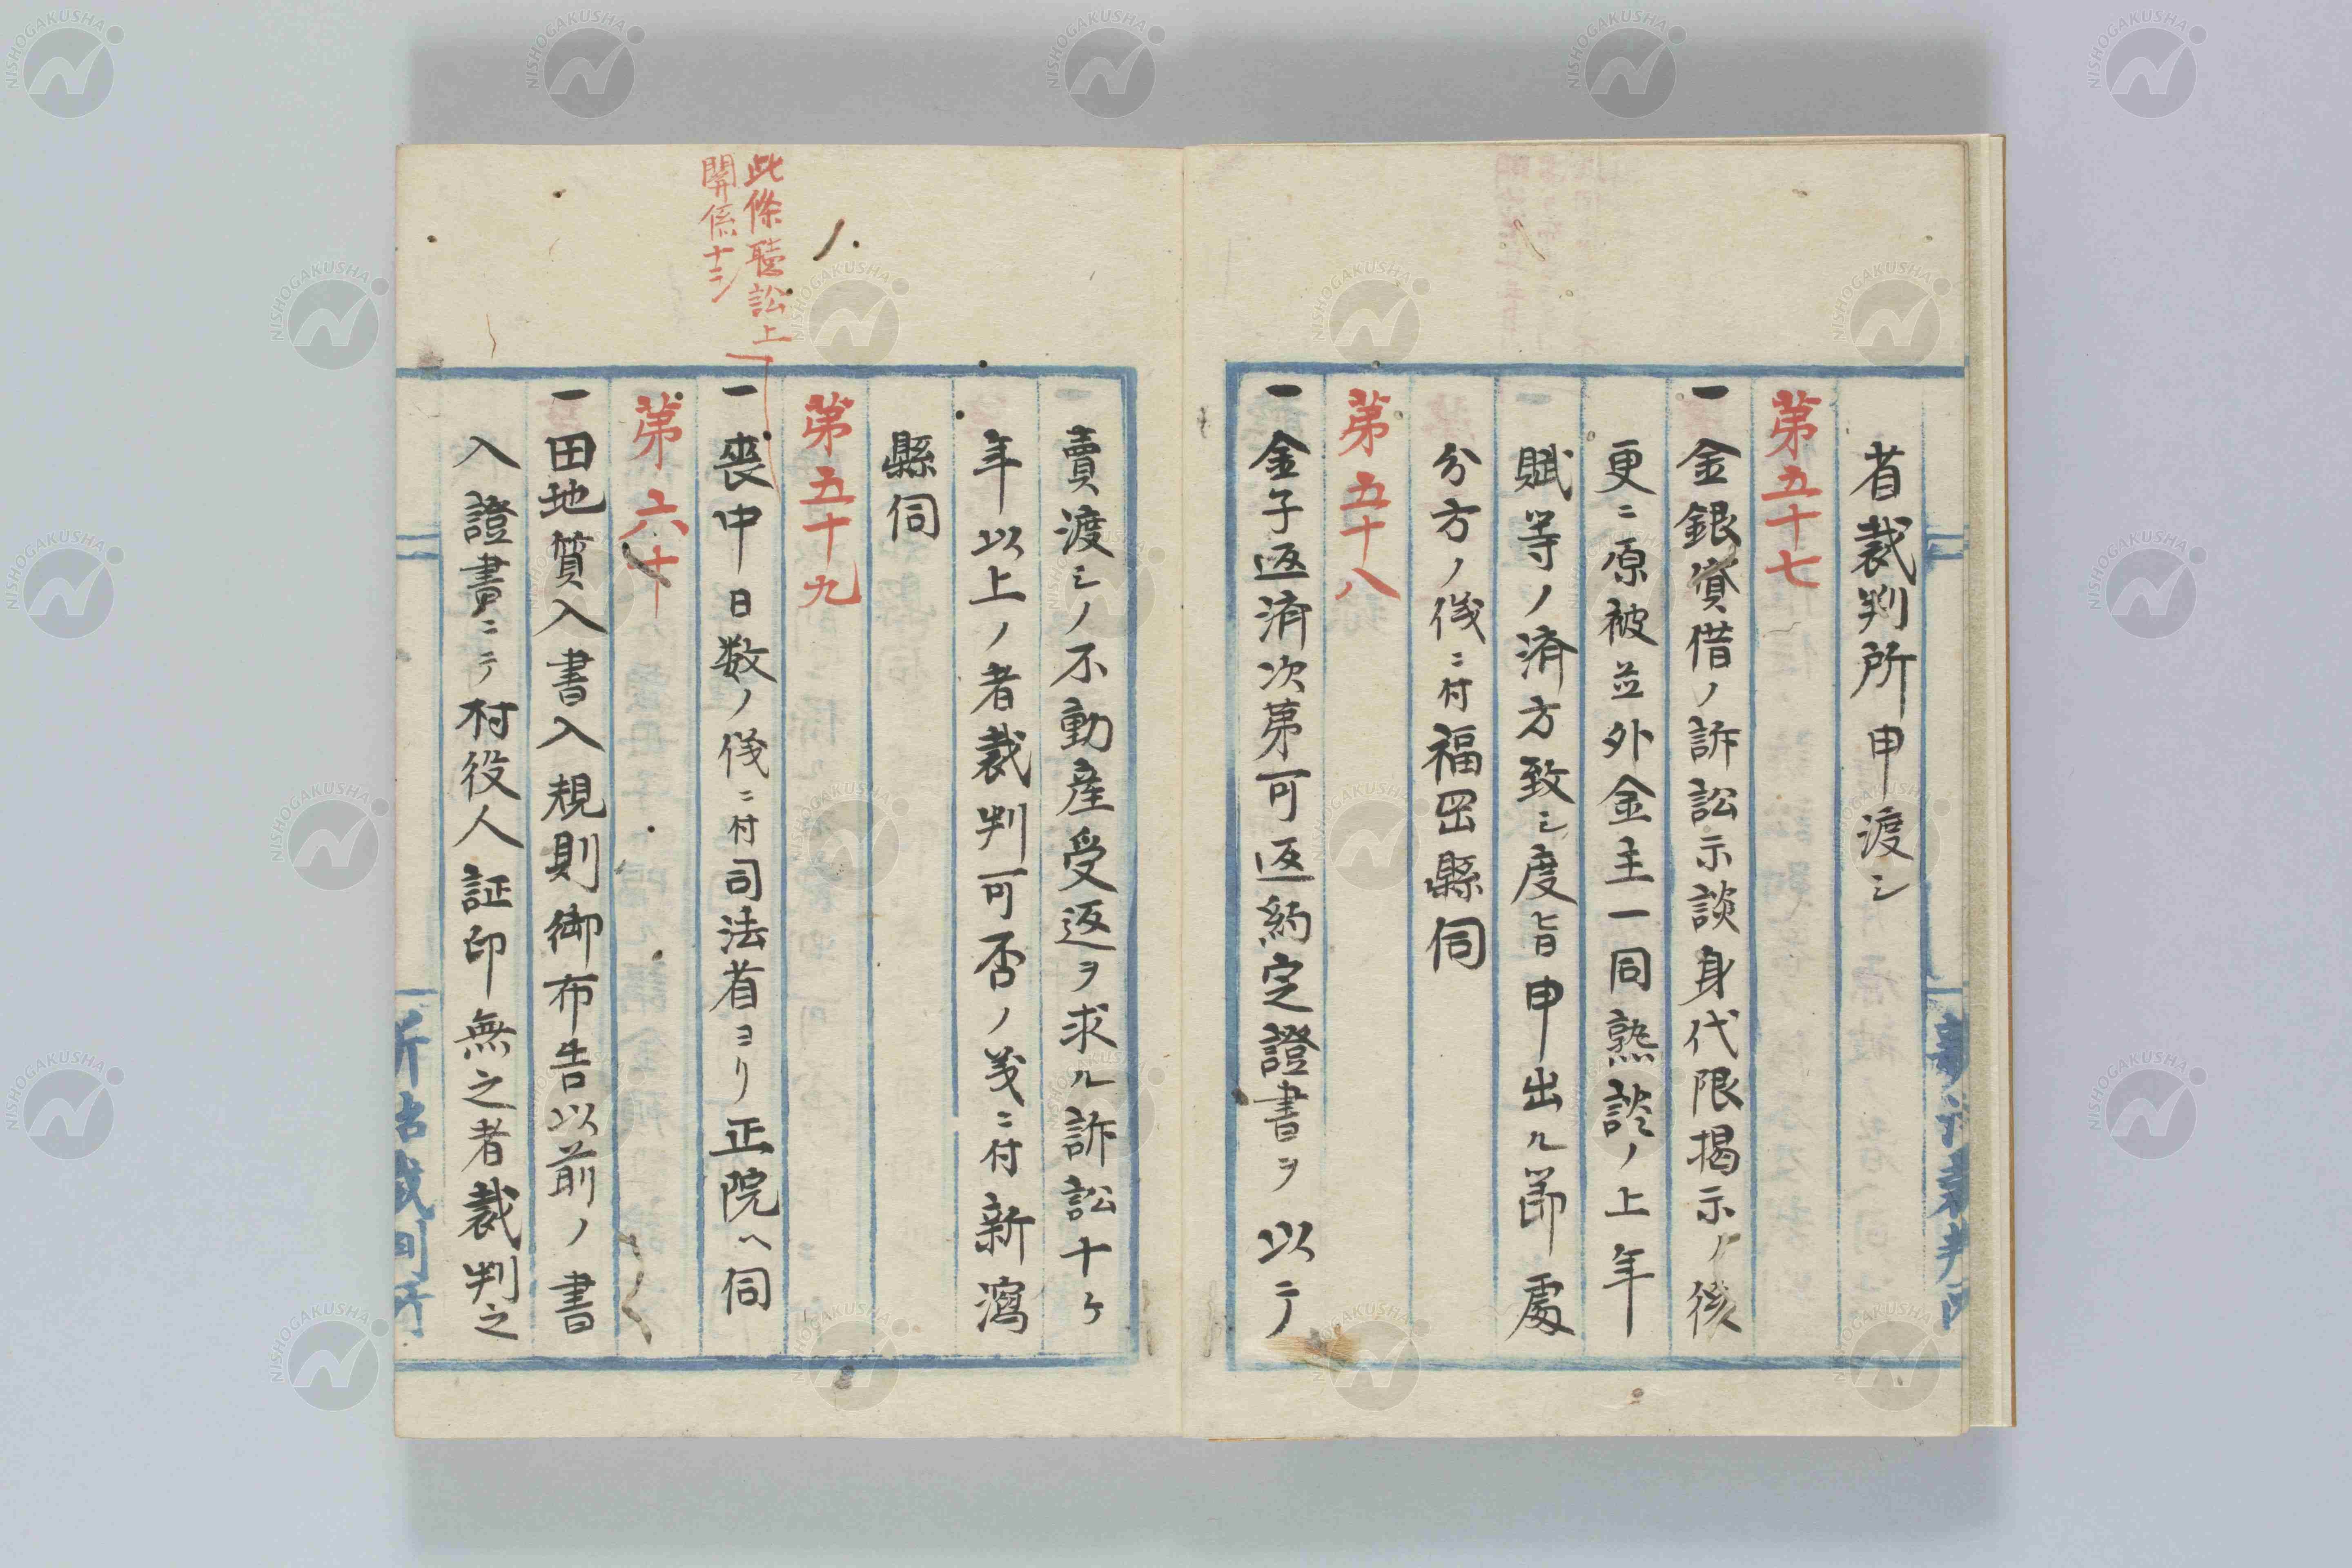 省裁判所申渡シ
第五十七
一金銀貸借ノ訴訟示談身代限揭示ノ後
更ニ原被並外金主一同熟談ノ上年
賦等ノ済方致シ度旨申出ル節處
分方ノ儀ニ付福岡縣伺
第五十八
一金子返済次第可返約定證書ヲ以テ
賣渡シノ不動産受返ヲ求ル訴訟十ヶ
年以上ノ者裁判可否ノ義ニ付新瀉
縣伺
第五十九
此條聴訟上
關係ナシ
一喪中日数ノ儀ニ付司法省ヨリ正院ヘ伺
第六十
一田地質入書入規則御布告以前ノ書
入證書ニテ村役人証印無之者裁判之
NISHOGAKUSHA